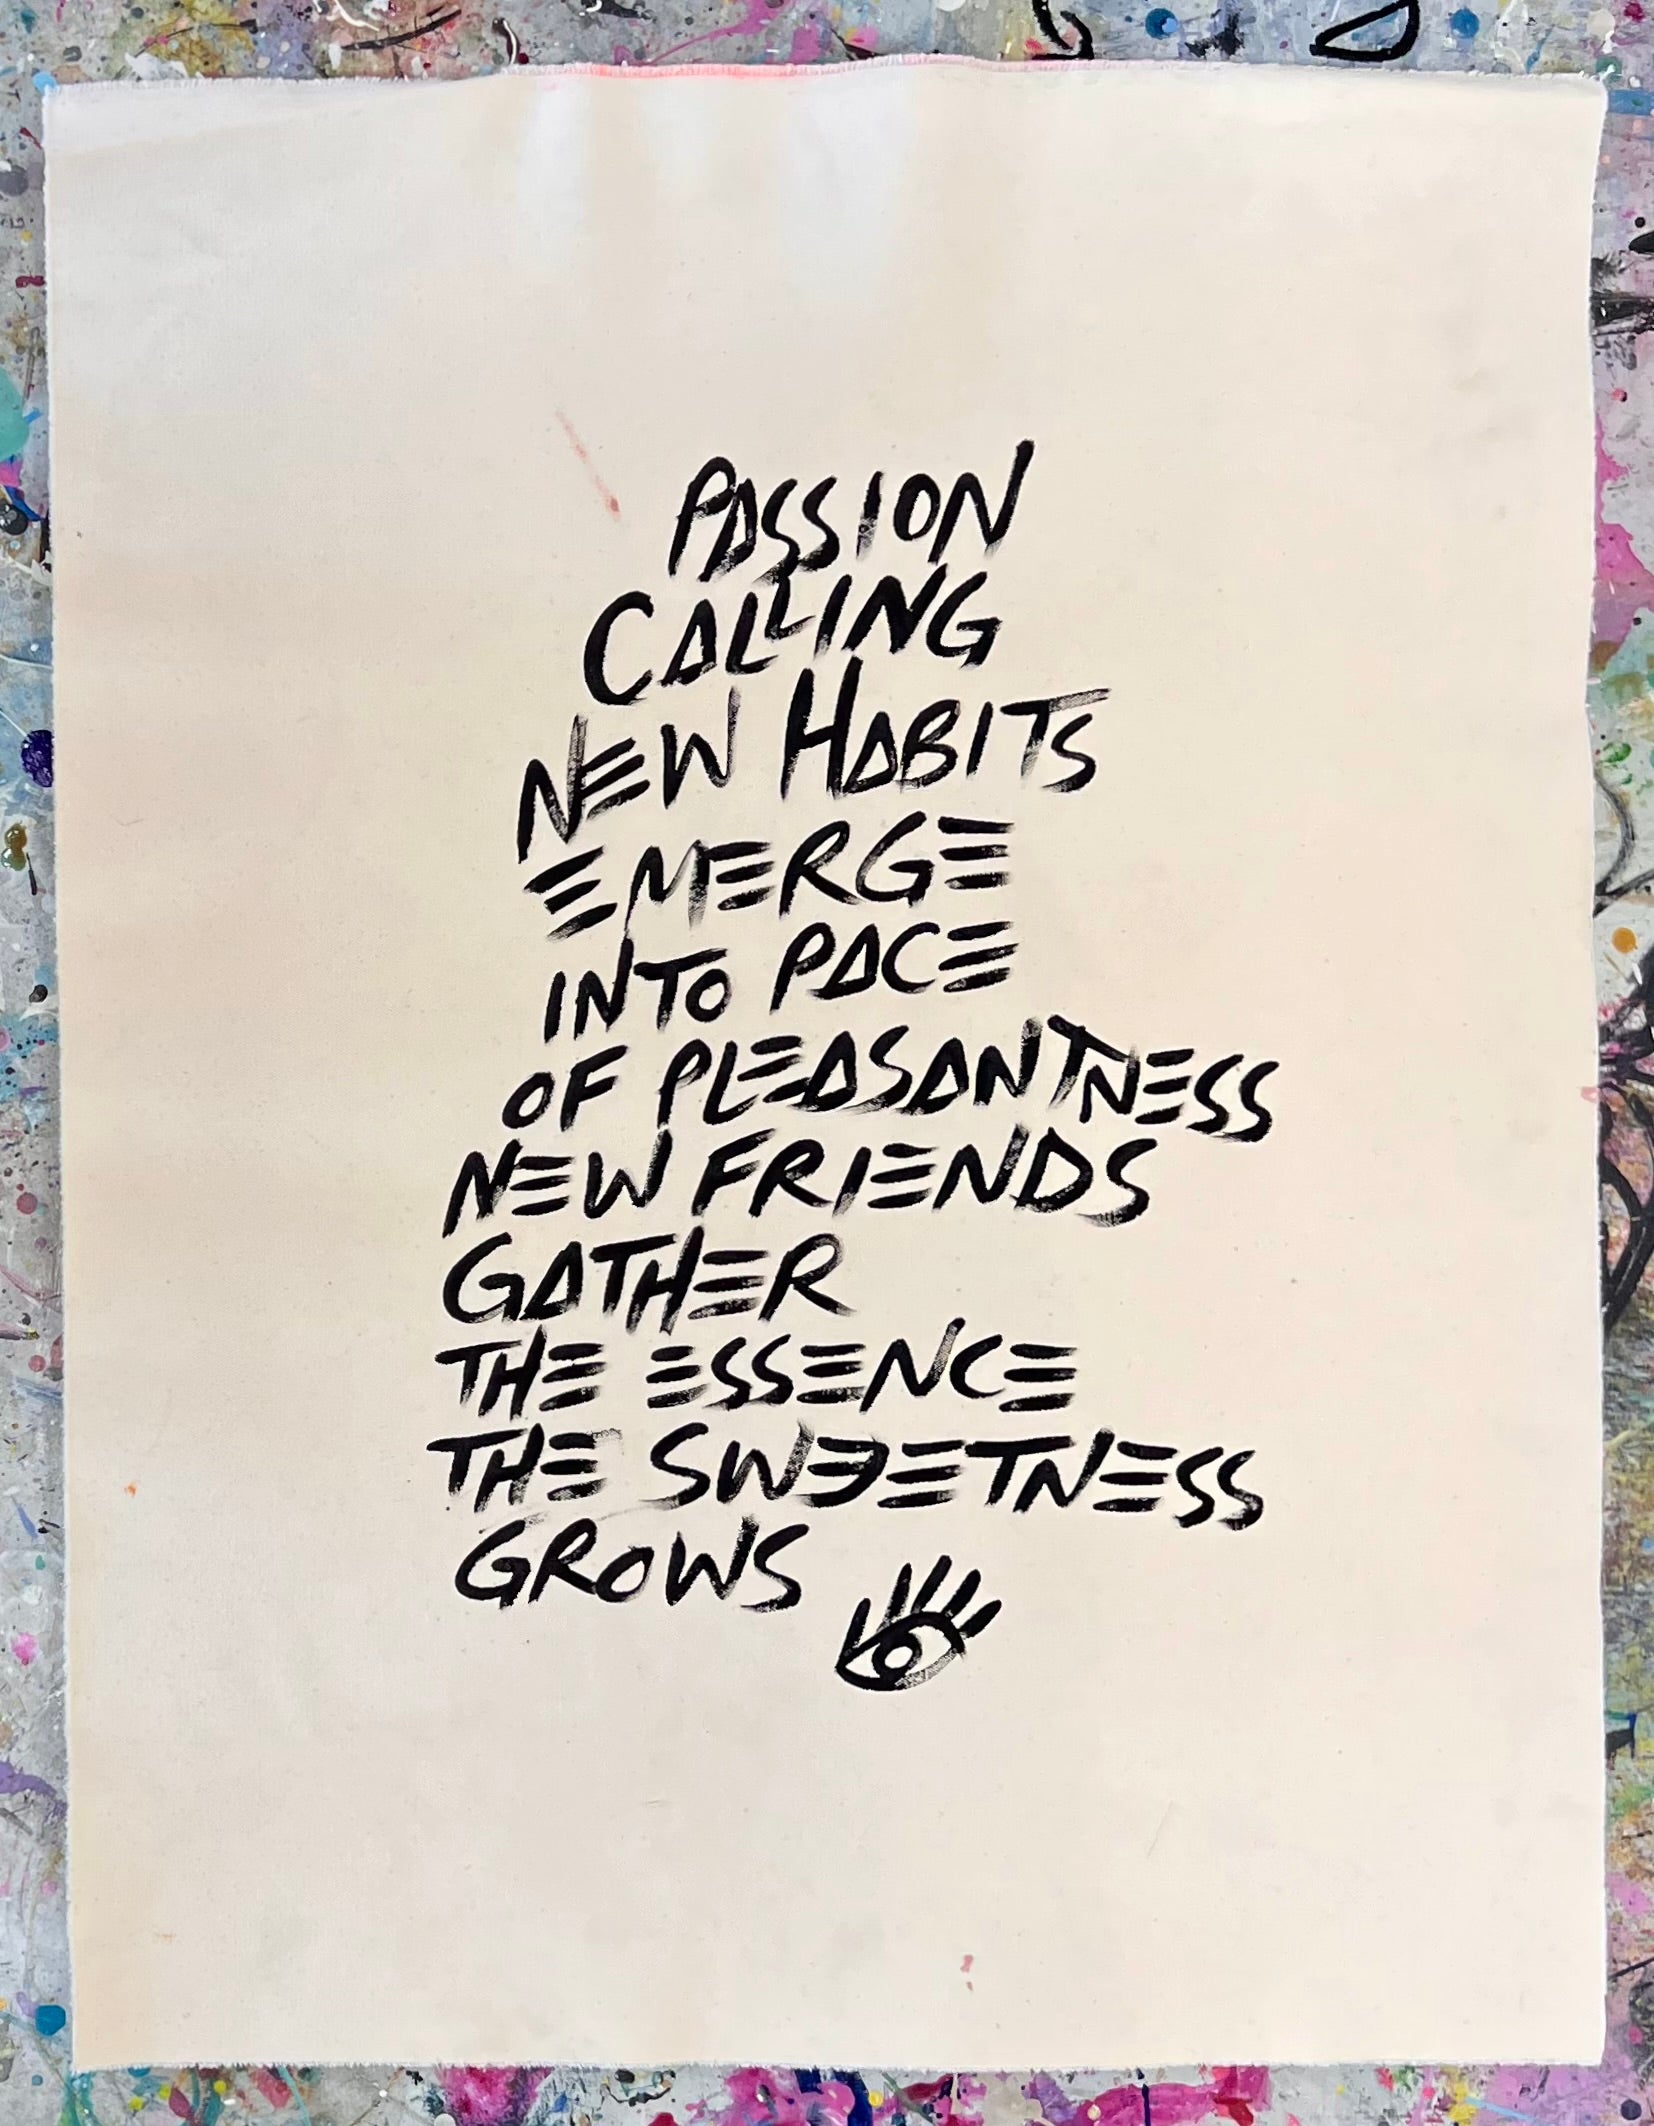 PASSION
CALLING
NEW HABITS
EMERGE
INTO PACE
OF PLEASANTNESS
NEW FRIENDS
GATHER
THE ESSENCE
THE SWEETNESS
GROWS